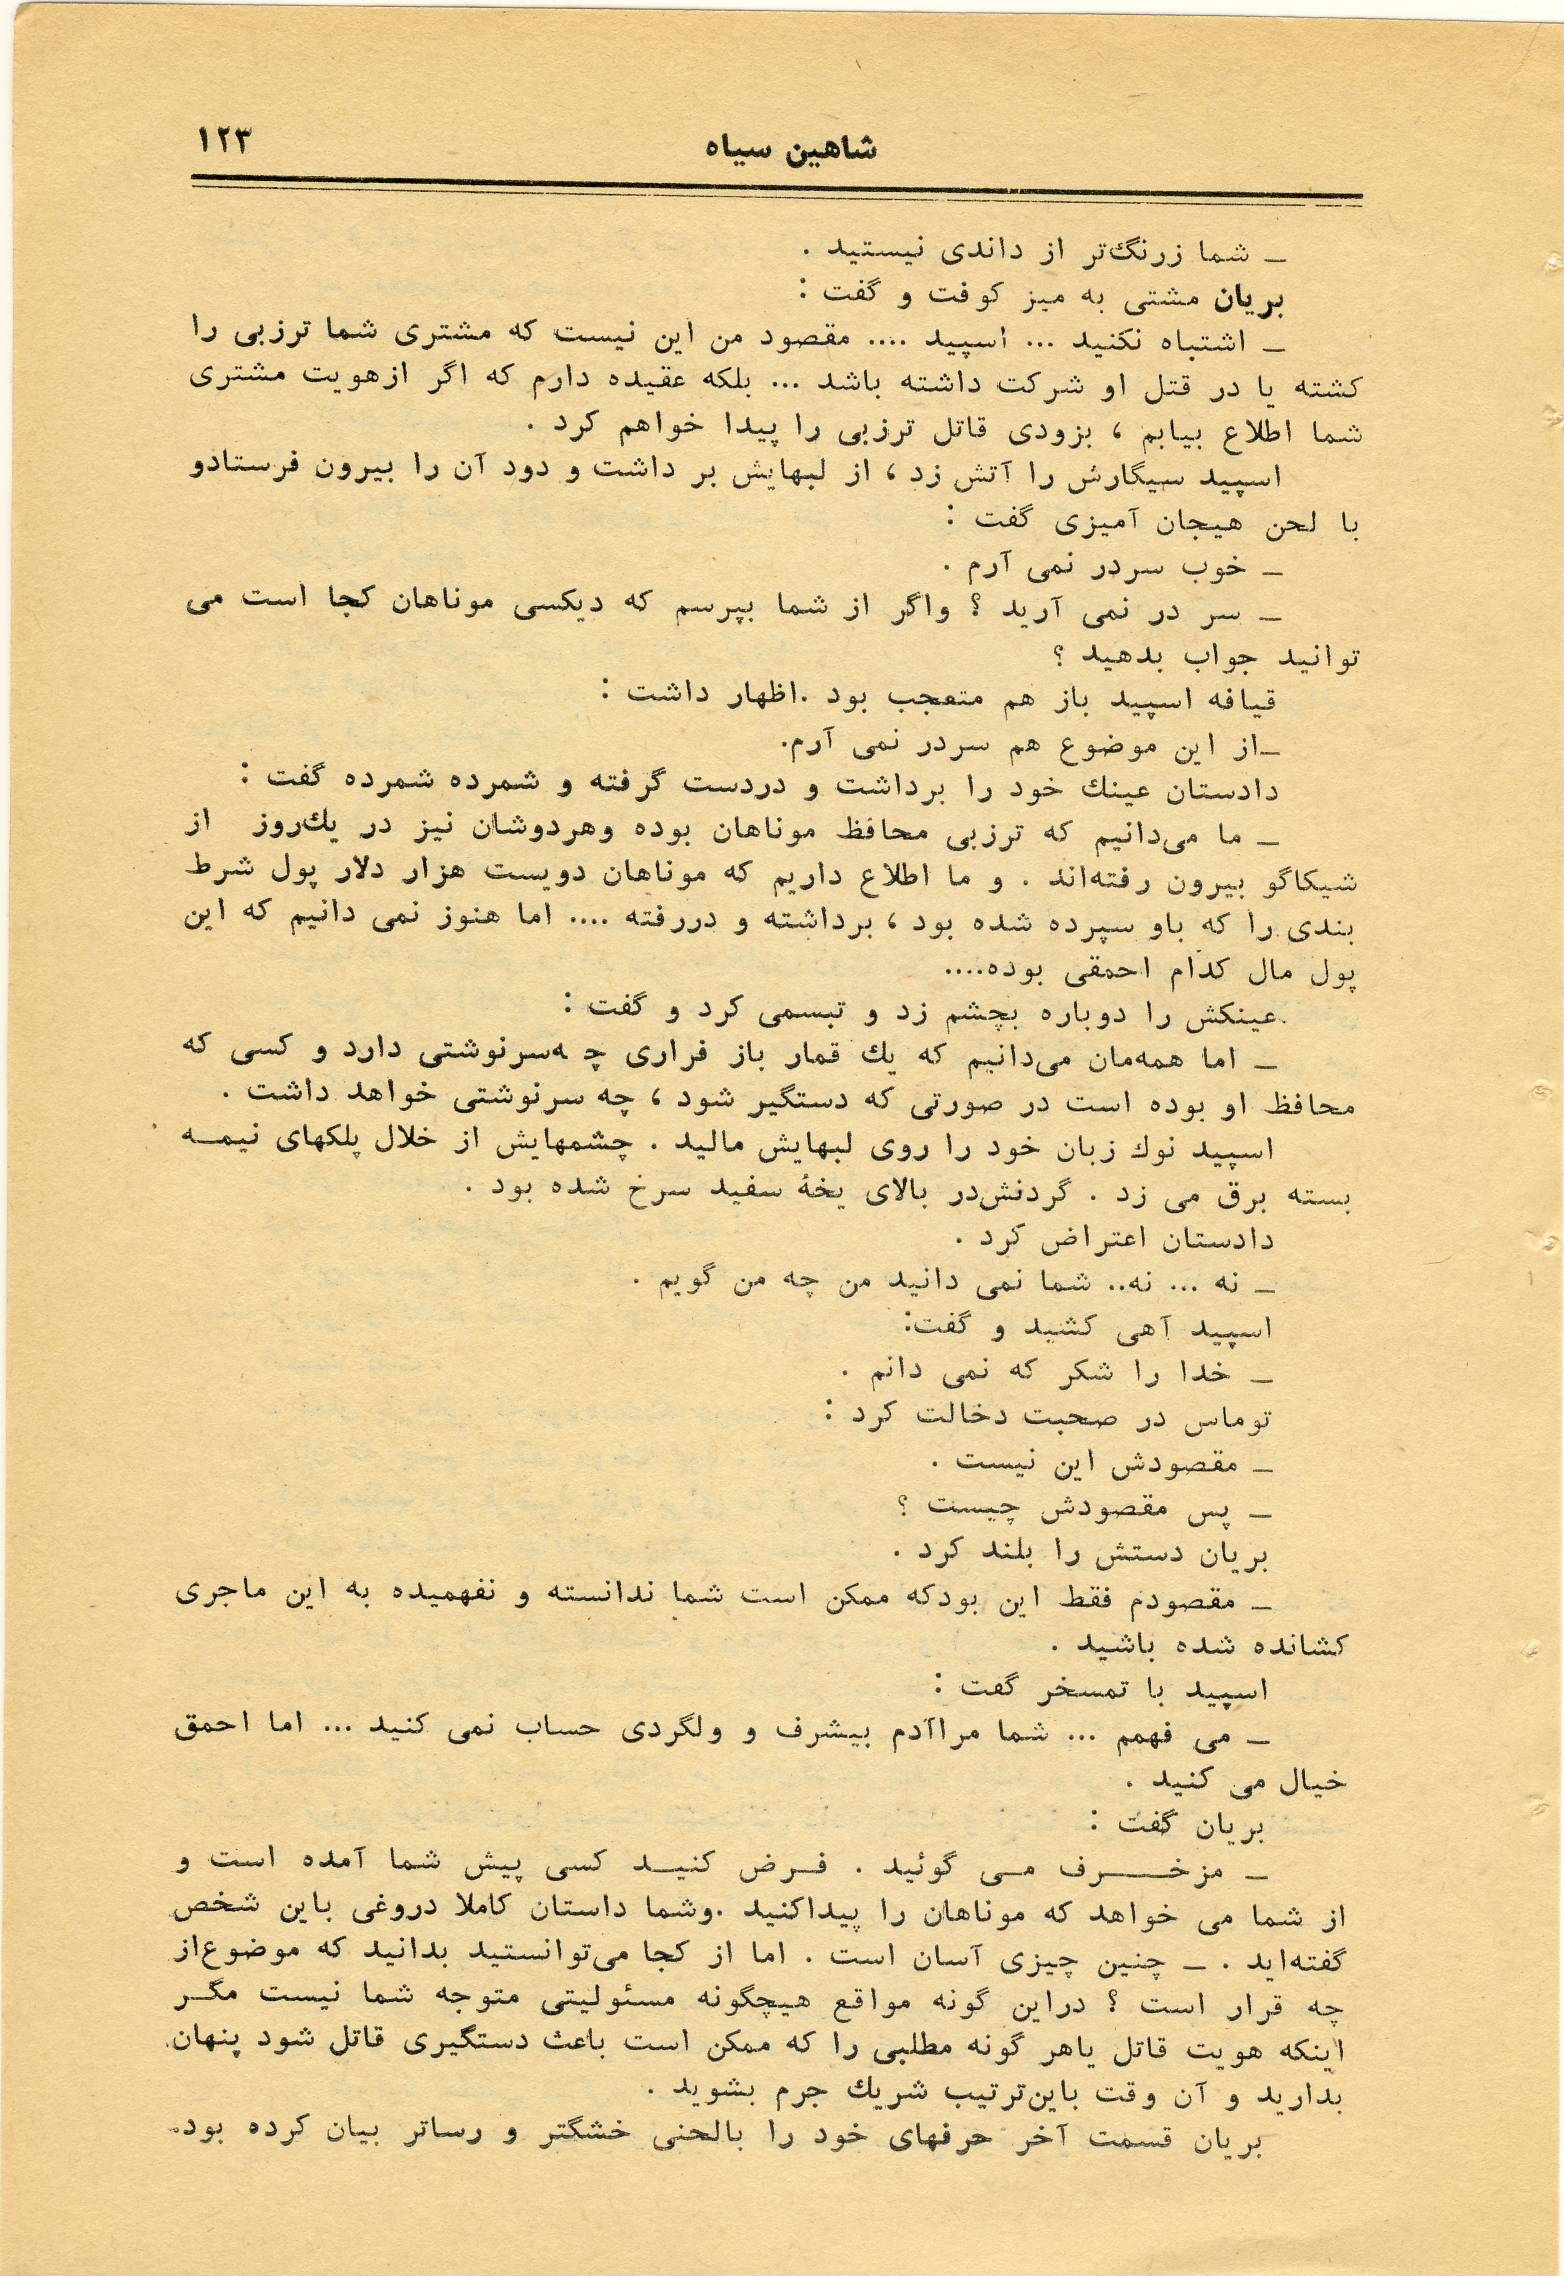 شاهین سیاه ۱۲۳
ـ شما زرنگ‌تر از داندی نیستید .
بریان مشتی به میز کوفت و گفت :
ـ اشتباه نکنید ... اسپید .... مقصود من این نیست که مشتری شما ترزبی را
کشته یا در قتل او شرکت داشته باشد ... بلکه عقیده دارم که اگر ازهویت مشتری
شما اطلاع بیابم ، بزودی قاتل ترزبی را پیدا خواهم کرد .
اسپید سیگارش را آتش زد ، از لبهایش بر داشت و دود آن را بیرون فرستادو
با لحن هیجان آمیزی گفت :
ـ خوب سردر نمی آرم .
ـ سر در نمی آرید ؟ واگر از شما بپرسم که دیکسی موناهان کجا است می
توانید جواب بدهید ؟
قیافه اسپید باز هم متعجب بود .اظهار داشت :
ـاز این موضوع هم سردر نمی آرم.
دادستان عینك خود را برداشت و دردست گرفته و شمرده شمرده گفت :
ـ ما می‌دانیم که ترزبی محافظ موناهان بوده وهردوشان نیز در یك‌روز از
شیکاگو بیرون رفته‌اند . و ما اطلاع داریم که موناهان دویست هزار دلار پول شرط
بندی را که باو سپرده شده بود ، برداشته و دررفته .... اما هنوز نمی دانیم که این
پول مال کدام احمقی بوده....
عینکش را دوباره بچشم زد و تبسمی کرد و گفت :
ـ اما همه‌مان می‌دانیم که یك قمار باز فراری چ ه‌سرنوشتی دارد و کسی که
محافظ او بوده است در صورتی که دستگیر شود ، چه سرنوشتی خواهد داشت .
اسپید نوك زبان خود را روی لبهایش مالید . چشمهایش از خلال پلکهای نیمـه
بسته برق می زد . گردنش‌در بالای یخهٔ سفید سرخ شده بود .
دادستان اعتراض کرد .
ـ نه ... نه.. شما نمی دانید من چه من گویم .
اسپید آهی کشید و گفت:
ـ خدا را شکر که نمی دانم .
توماس در صحبت دخالت کرد :
ـ مقصودش این نیست .
ـ پس مقصودش چیست ؟
بریان دستش را بلند کرد .
ـ مقصودم فقط این بودکه ممکن است شما ندانسته و نفهمیده به این ماجری
کشانده شده باشید .
اسپید با تمسخر گفت :
ـ می فهمم ... شما مراآدم بیشرف و ولگردی حساب نمی کنید ... اما احمق
خیال می کنید .
بریان گفت :
ـ مزخـــرف مـی گوئید . فـرض کنیـد کسی پیش شما آمده است و
از شما می خواهد که موناهان را پیداکنید .وشما داستان کاملا دروغی باین شخص
گفته‌اید . ـ چنین چیزی آسان است . اما از کجا می‌توانستید بدانید که موضوع‌از
چه قرار است ؟ دراین گونه مواقع هیچگونه مسئولیتی متوجه شما نیست مگـر
اینکه هویت قاتل یاهر گونه مطلبی را که ممکن است باعث دستگیری قاتل شود پنهان
بدارید و آن وقت باین‌ترتیب شریك جرم بشوید .
بریان قسمت آخر حرفهای خود را بالحنی خشگتر و رساتر بیان کرده بود.